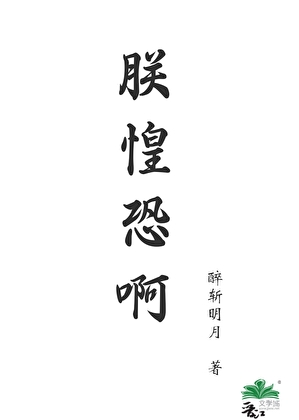 朕惶恐啊
醉斩明月 著
文學城
晋江